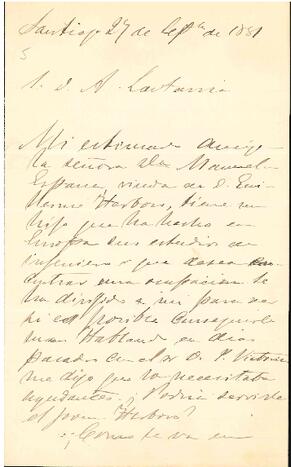 Santiago 27 de Septe de 1881
S. D. A. Lastarria
Mi estimado amigo
la señora Da Manuela
España, viuda de D. Gui-
llermo Harbors, tiene un
hijo que ha hecho en
Europa sus estudios de
ingeniero i que desea en-
contrar una ocupacion. Se
ha dirijido a mí para ver
si es posible conseguirle
una. Hablando en dias
pasados con el Sr. D.
me dijo que Ud. necesitaba
ayudantes. ¿Podria servirle
el joven Harbors?
¿Como le va en